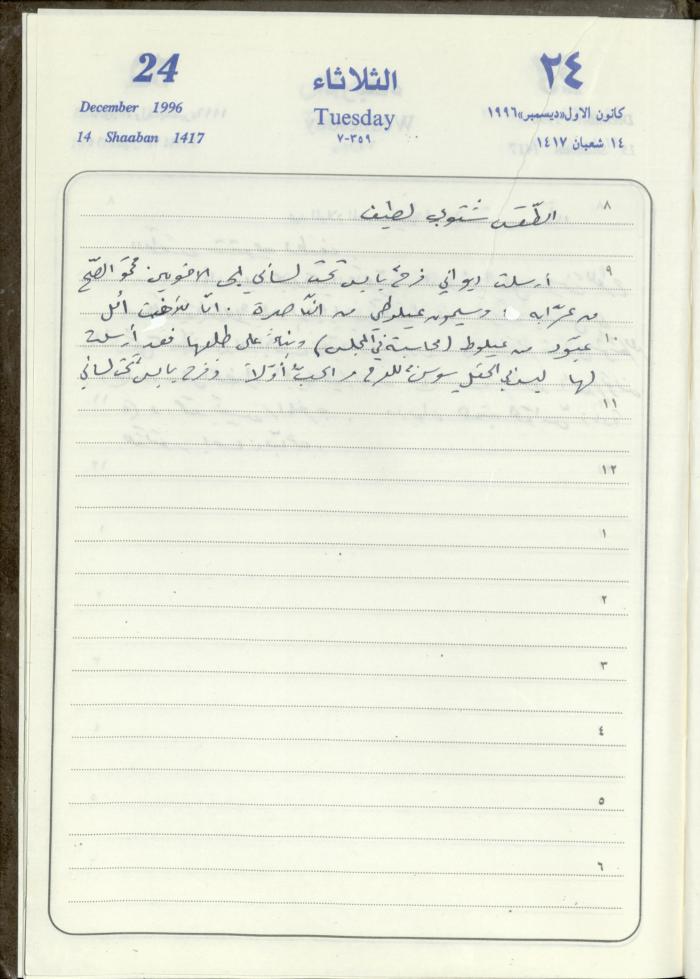 24
December 1996
14 Shaaban 1417
الثلاثاء
Tuesday
٧-٣٥٩
٢٤
كانون الاول «ديسمبر» ١٩٩٦
١٤ شعبان ١٤١٧
٨
الطّقس شتوي لطيف
٩
أرسلت ديواني فرحٌ يابس تحت لساني إلى الأخوين: محمّد الصّح
من عرّابه، وسيمون عيلوطي من النّاصرة. أمّا للأخت أمل
١٠
عبّود من عيلوط (محاسبة في المجلس) وبناءً على طلبها فقد أرسلت
لها ليدني الحقلي سوسنة للفرح مر الحب أوّلاً وفرح يابس تحت لساني
١١
١٢
١
٢
٣
٤
٥
٦